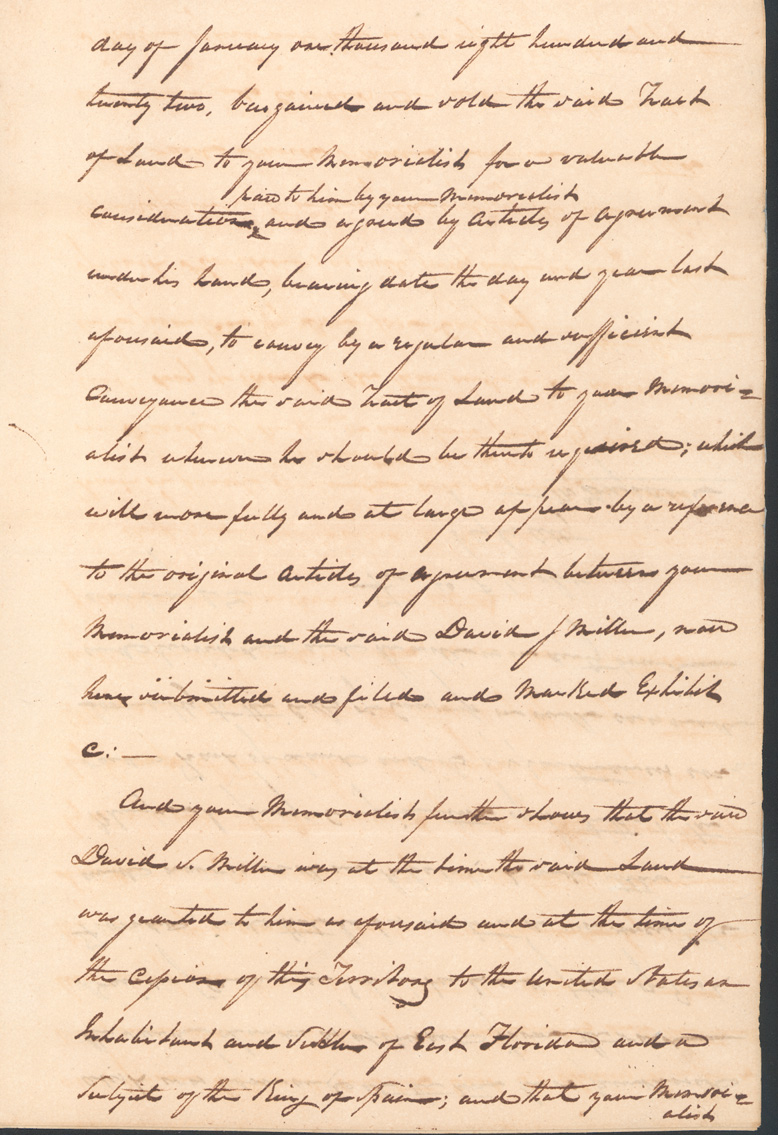 day of January one thousand eight hundred and
twenty two, bargained and sold the said Tract
of Land to your Memorialist for a valuable
paid to him by your Memorialist
consideration, and agreed by Articles of Agreement
under his hand, bearing date the day and year last
aforesaid, to convey by a regular and sufficient
Conveyance the said Tract of Land to your Memori=
alist whenever he should be thereto required; which
will more fully and at large appear by a reference
to the original Articles of agreement between your
Memorialist and the said David S Miller, now
here submitted and filed and Marked Exhibit
C: —
And your Memorialist further shows that the said
David S. Miller was at the time the said Land
was granted to him as aforesaid and at the time of
the Cession of this Territory to the United States an
Inhabitant and Settler of East Florida and a
Subject of the King of Spain; and that your Memori=
alist